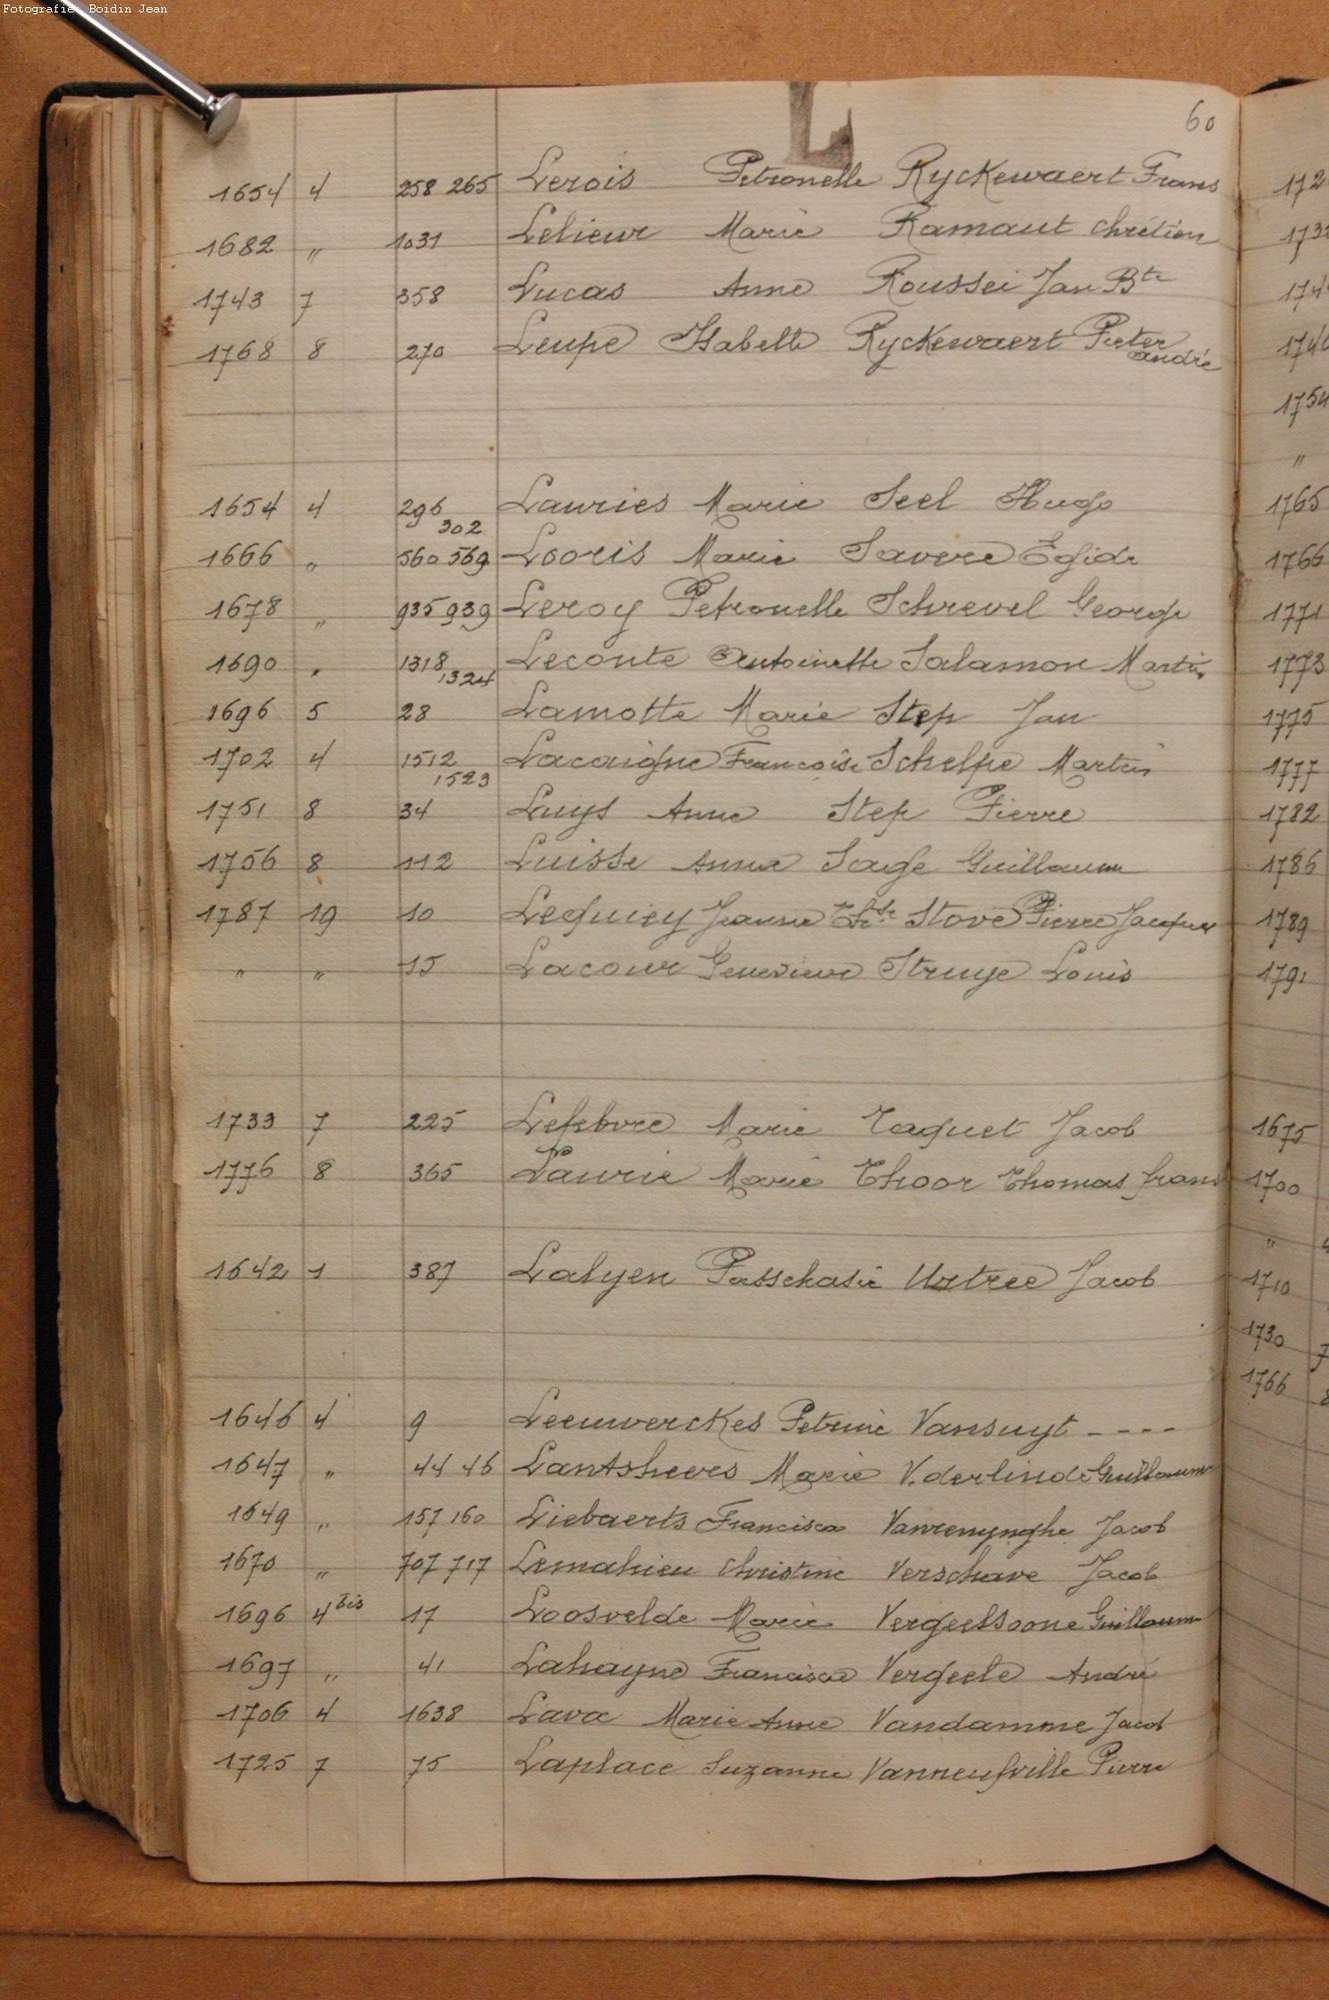 Fotografie: Boidin Jean
60
L
1654 4 258 265 Lerois Petronelle Ryckewaert Frans
1682 " 1031 Lelieur Marie Ramaut chrétien
1743 7 358 Lucas Anne Roussei Jan Bte
1768 8 270 Leupe Isabelle Ryckewaert Pieter
andré
1654 4 296 Lauries Marie Seel Hugo
302
1666 " 560 569 Looris Marie Savere Egide
1678 " 935 939 Leroy Petronelle Schrevel George
1690 " 1318 Leconte Antoinette Salamon Martin
1324
1696 5 28 Lamotte Marie Step Jan
1702 4 1512 Lacaigne Francoise Schelpe Martin
1523
1751 8 34 Luys Anne Step Pierre
1756 8 112 Luisse Anna Sage Guillaume
1787 19 10 Lequiey Jeanne Stove Pierre Jacques
" " 15 Lacour Genevieve Struye Louis
1733 7 225 Lefebvre Marie Taquet Jacob
1776 8 365 Laurie Marie Thoor Thomas frans
1642 1 387 Lalyen Passchasie Urtree Jacob
1646 4 9 Leeuwerckes Petrine Vansuyt - - - -
1647 " 44 46 Lantsheers Marie V.derlinde Guillaume
1649 " 157 160 Liebaerts Francisca Vanrenynghe Jacob
1670 " 707 717 Lemahieu Christine Verschave Jacob
1696 4 bis 17 Loosvelde Marie Vergeelsoone Guillaume
1697 " 41 Lahayne Francisca Vergeele André
1706 4 1638 Lava Marie Anne Vandamme Jacob
1725 7 75 Laplace Suzanne Vanneufville Pierre
1765
1766
1771
1773
1775
1777
1782
1786
1789
1791
1675
1700
"
1710
1730
1766